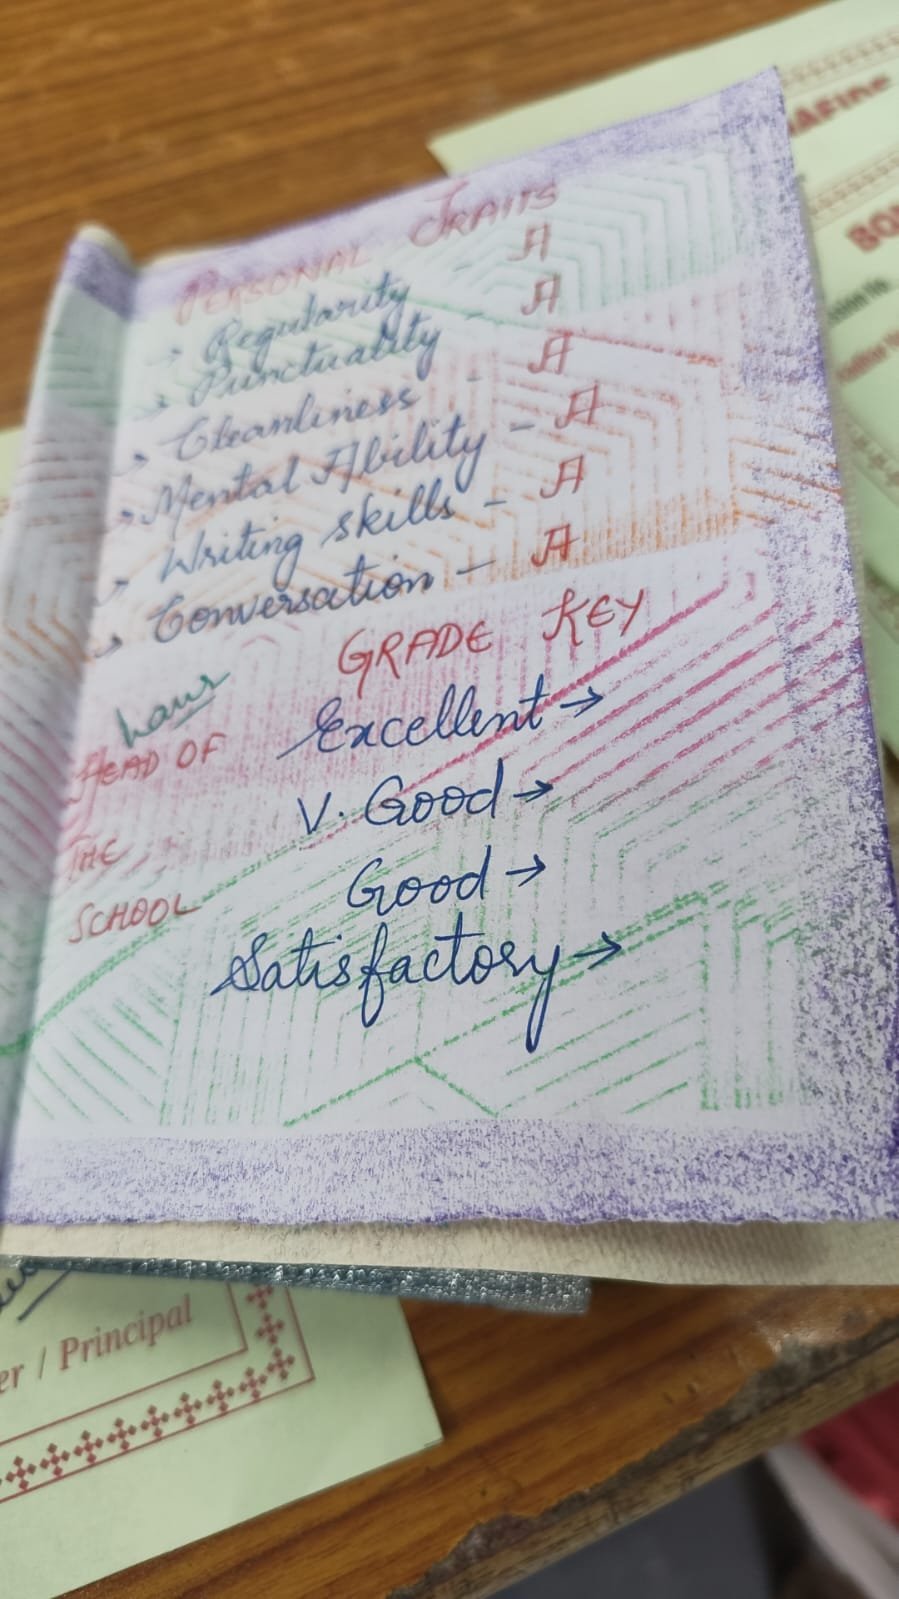 PERSONAL TRAITS
→ Regularity - A
→ Punctuality - A
→ Cleanliness - A
→ Mental Ability - A
→ Writing skills - A
→ Conversation - A
GRADE KEY
Excellent →
V. Good →
Good →
Satisfactory →
HEAD OF
THE
SCHOOL
/ Principal